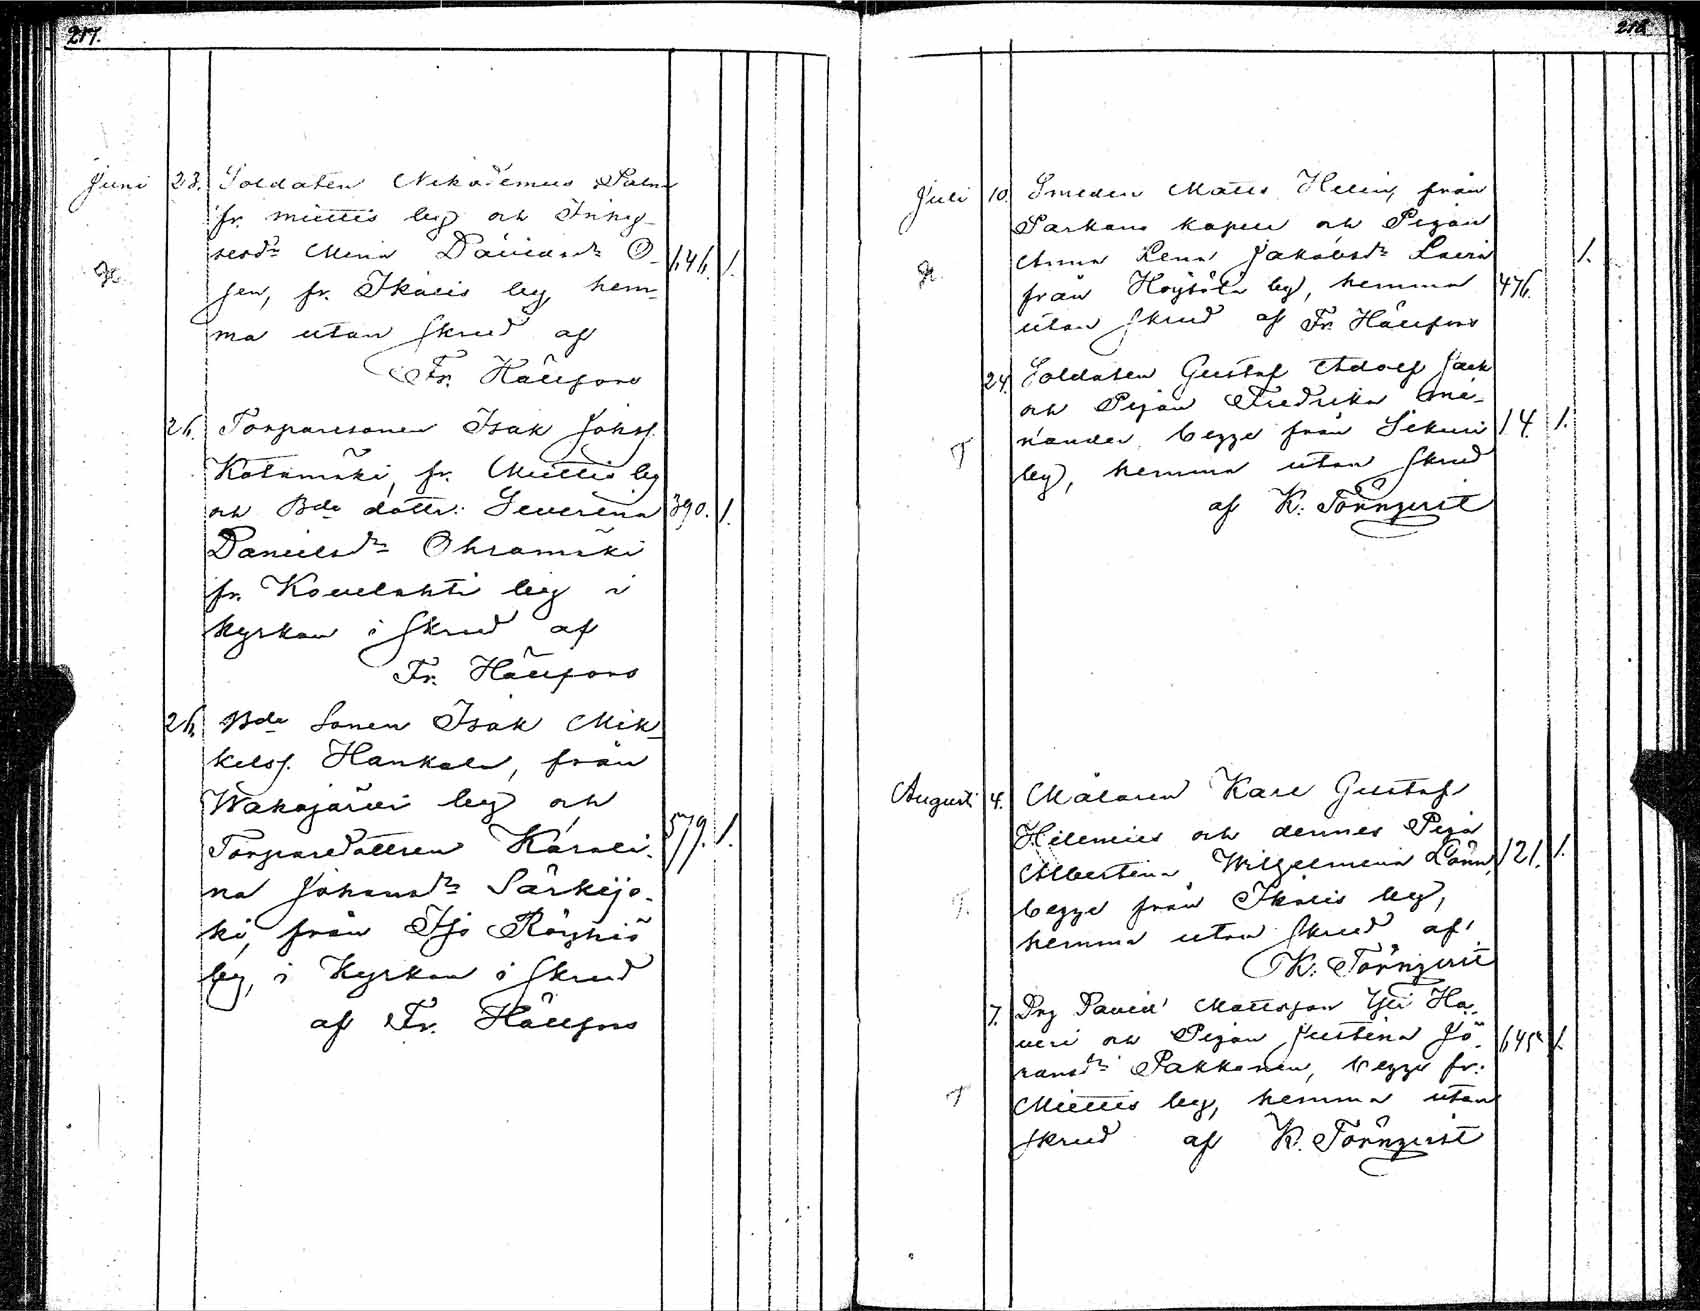 217.
Juni 23. Soldaten Nikodemus Palm
fr. Miettis by och Inhy-
sesdr Mina Davidsdr O- 646. 1.
H
jen, fr. Ikalis by, hem-
ma utan skrud af
Fr. Hällfors
26. Torparesonen Isak Johsf.
Kotamäki, fr. Miettis by
och Bde dottr. Severina 390. 1.
Danielsdr Ohramäki
fr. Kovelahti by i
kyrkan i skrud af
Fr. Hällfors
26. Bde Sonen Isak Mik-
kelsf. Hankala, från
Wahojärvi by och
Torparedottren Karoli- 579. 1.
na Johansdr Särkijo-
ki, från Iso Röyhiö
by, i Kyrkan i skrud
af Fr. Hällfors
218
Juli 10. Smeden Matts Helin, från
Parkano kapell och Pigan
Anna Lena Jakobsdr 1.
H
från Höytölä by, hemma 476.
utan skrud af Fr. Hällfors
24. Soldaten Gustaf Adolf Jack
och Pigan Fredrika
begge från Sikuri 14. 1.
T
by, hemma utan skrud
af K. Törnqvist
Augusti 4. Målaren Karl Gustaf
Hilenius och dennes Piga
Albertina Wilhelmina Lönn, 121. 1.
T.
begge från Ikalis by,
hemma utan skrud af
K. Törnqvist
7. Drg David Mattsson Yli Ha-
veri och Pigan Justina Jö- 645 1.
ransdr Pakkanen, begge fr.
T
Miettis by, hemma utan
skrud af K. Törnqvist